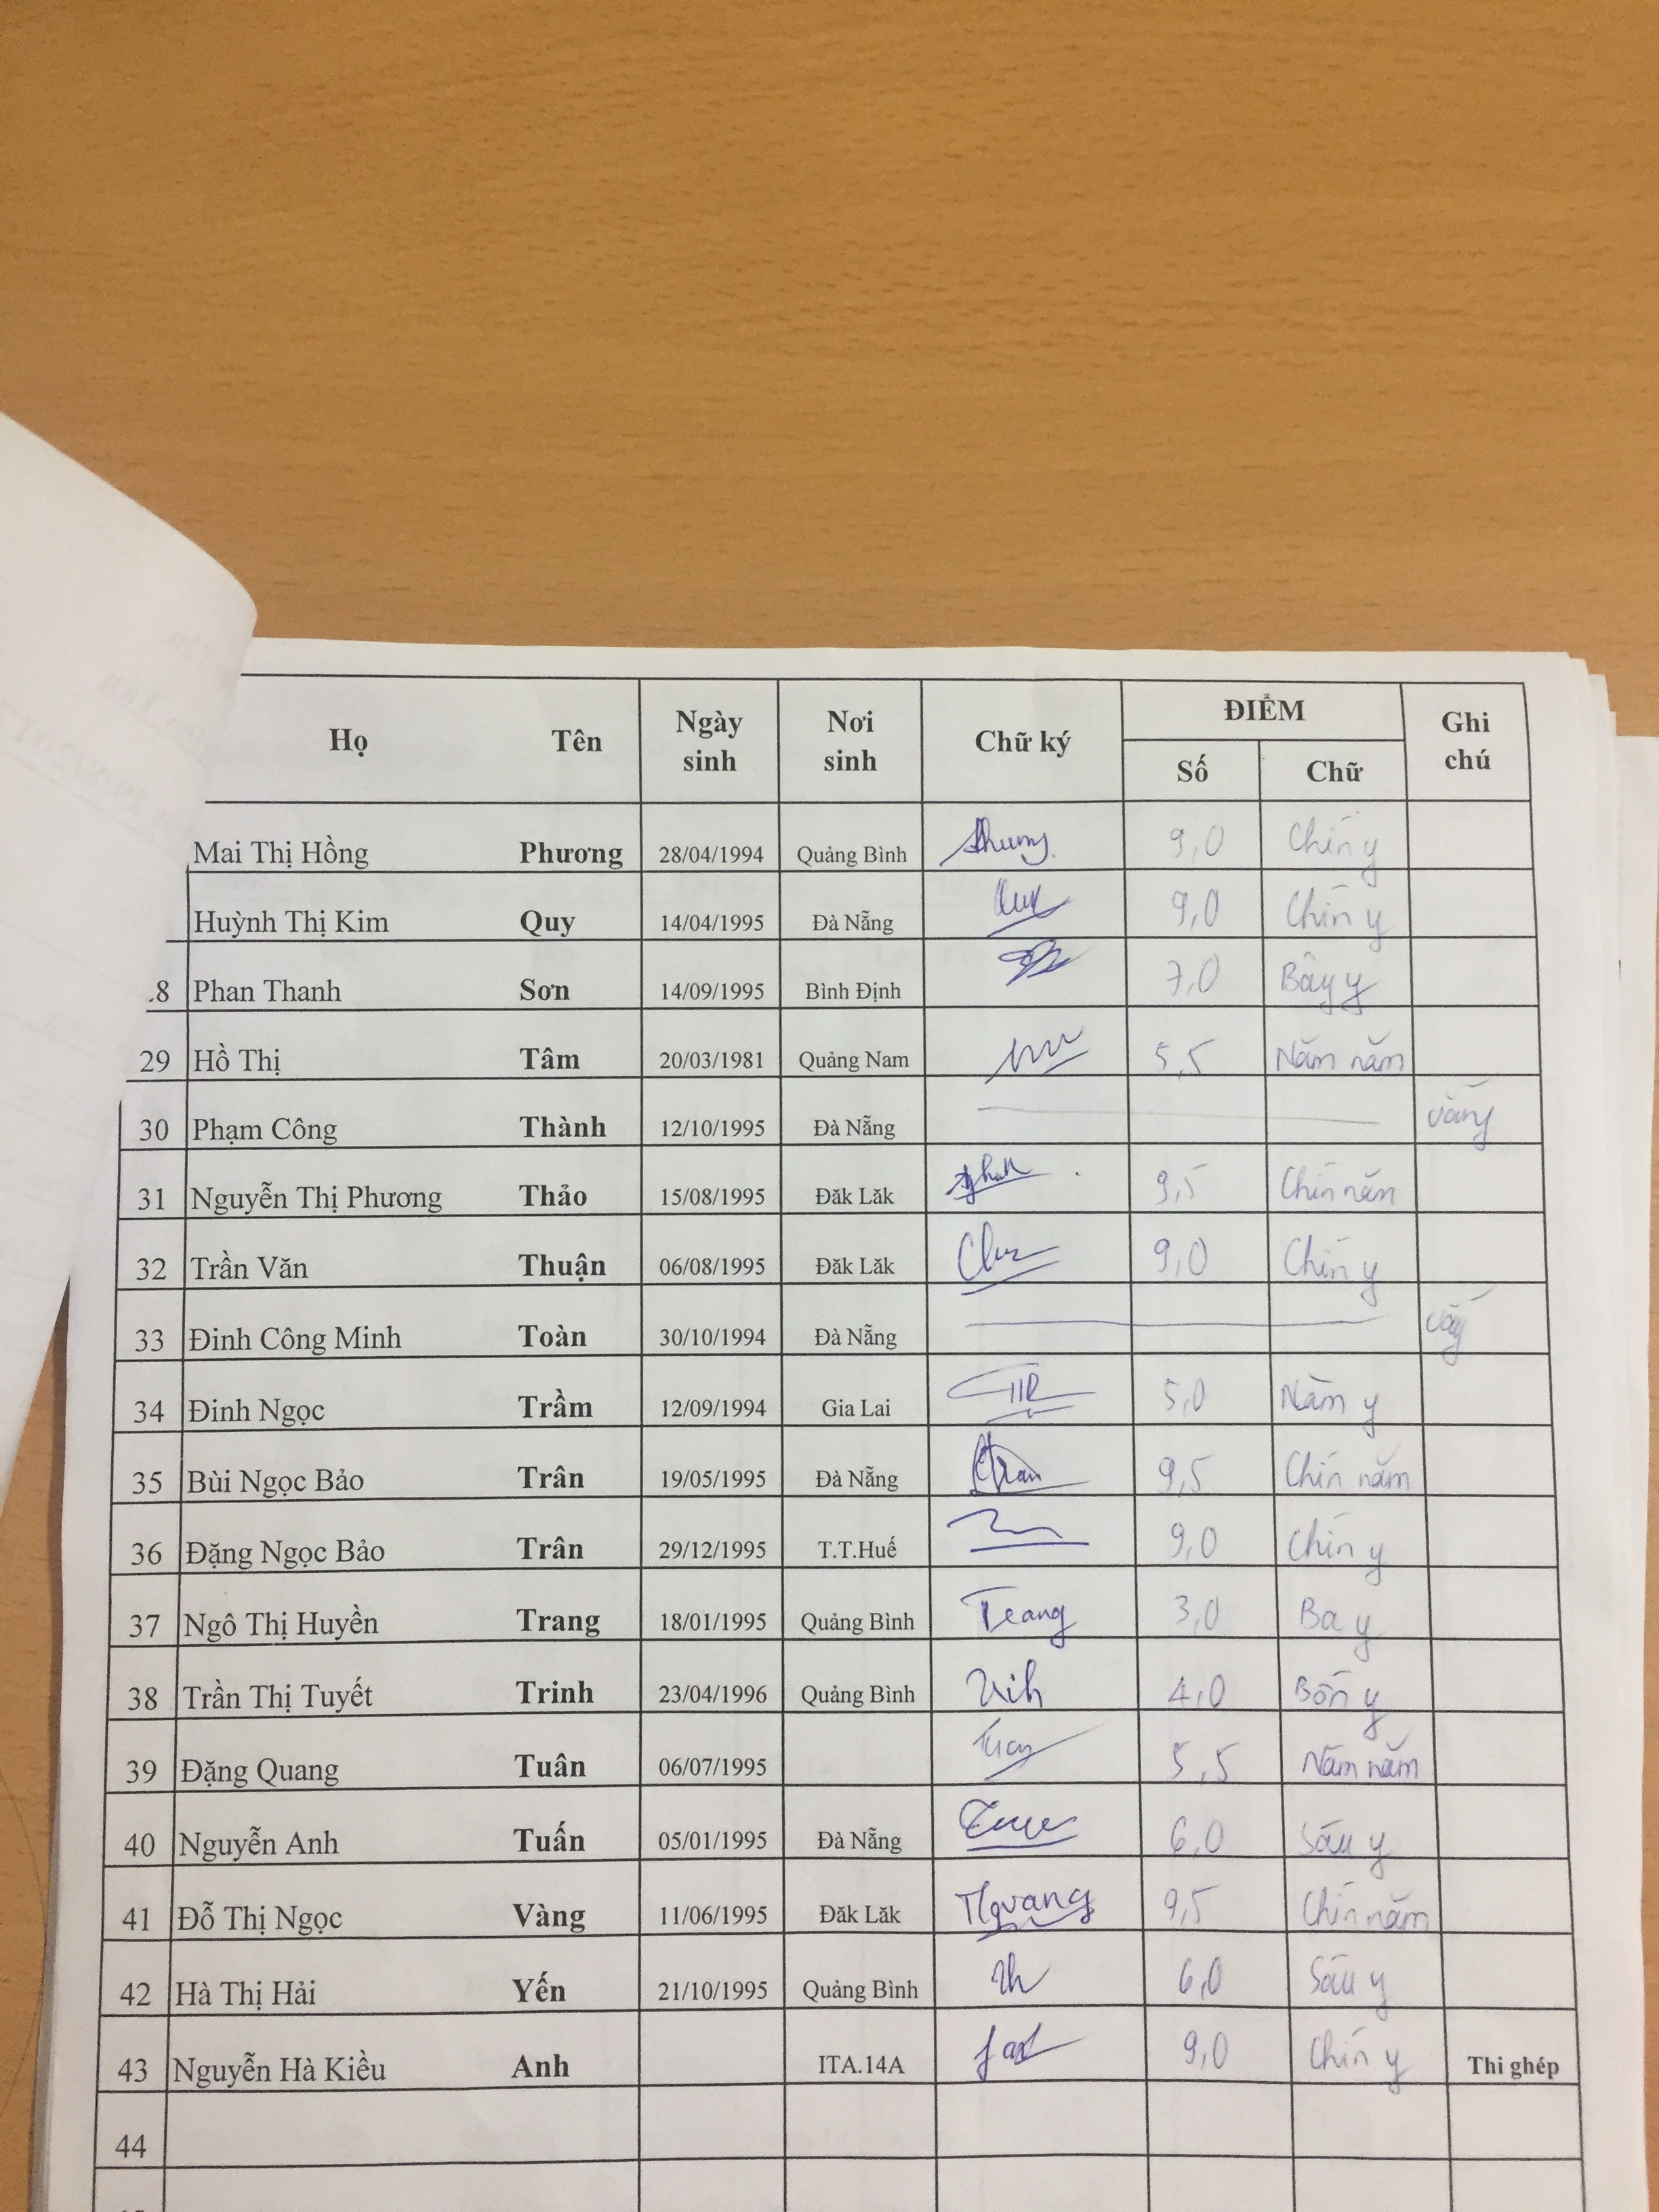 Họ Tên Ngày sinh Nơi sinh Chữ ký ĐIỂM Ghi chú
Số Chữ
Mai Thị Hồng Phương 28/04/1994 Quảng Bình 9,0 Chín y
Huỳnh Thị Kim Quy 14/04/1995 Đà Nẵng 9,0 Chín y
8 Phan Thanh Sơn 14/09/1995 Bình Định 7,0 Bảy y
29 Hồ Thị Tâm 20/03/1981 Quảng Nam 5,5 Năm năm
30 Phạm Công Thành 12/10/1995 Đà Nẵng vắng
31 Nguyễn Thị Phương Thảo 15/08/1995 Đăk Lăk 9,5 Chín năm
32 Trần Văn Thuận 06/08/1995 Đăk Lăk 9,0 Chín y
33 Đinh Công Minh Toàn 30/10/1994 Đà Nẵng
34 Đinh Ngọc Trầm 12/09/1994 Gia Lai 5,0 Năm y
35 Bùi Ngọc Bảo Trân 19/05/1995 Đà Nẵng 9,5 Chín năm
36 Đặng Ngọc Bảo Trân 29/12/1995 T.T.Huế 9,0 Chín y
37 Ngô Thị Huyền Trang 18/01/1995 Quảng Bình Trang 3,0 Ba y
38 Trần Thị Tuyết Trinh 23/04/1996 Quảng Bình 4,0 Bốn y
39 Đặng Quang Tuân 06/07/1995 5,5 Năm năm
40 Nguyễn Anh Tuấn 05/01/1995 Đà Nẵng 6,0 Sáu y
41 Đỗ Thị Ngọc Vàng 11/06/1995 Đăk Lăk 9,5 Chín năm
42 Hà Thị Hải Yến 21/10/1995 Quảng Bình 6,0 Sáu y
43 Nguyễn Hà Kiều Anh ITA.14A 9,0 Chín y Thi ghép
44